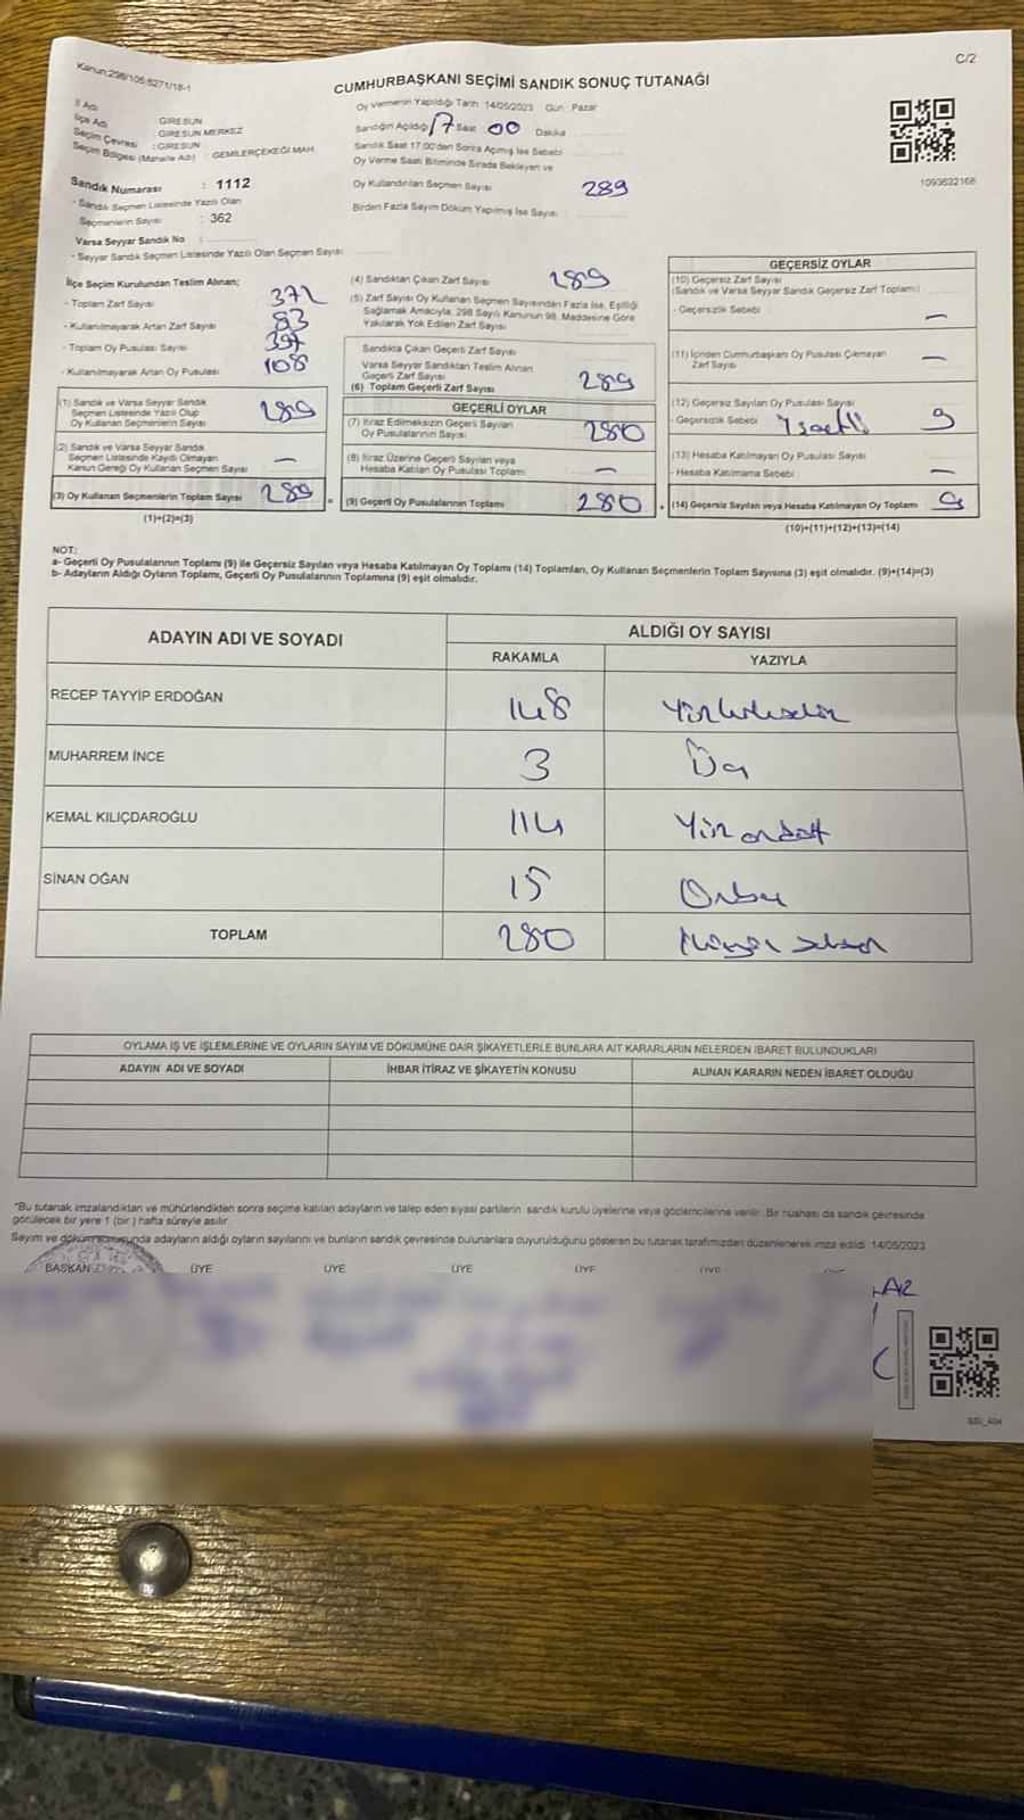 Kanun:298/105-6271/18-1
C/2
CUMHURBAŞKANI SEÇİMİ SANDIK SONUÇ TUTANAĞI
İl Adı : GİRESUN
İlçe Adı : GİRESUN MERKEZ
Seçim Çevresi : GİRESUN
Seçim Bölgesi (Mahalle Adı) : GEMİLERÇEKEĞİ MAH.
Sandık Numarası : 1112
- Sandık Seçmen Listesinde Yazılı Olan
Seçmenlerin Sayısı : 362
Varsa Seyyar Sandık No :
- Seyyar Sandık Seçmen Listesinde Yazılı Olan Seçmen Sayısı
Oy Vermenin Yapıldığı Tarih 14/05/2023 Gün : Pazar
Sandığın Açıldığı 17 Saat 00 Dakika
Sandık Saat 17:00'den Sonra Açılmış İse Sebebi
Oy Verme Saati Bitiminde Sırada Bekleyen ve
Oy Kullandırılan Seçmen Sayısı 289
Birden Fazla Sayım Döküm Yapılmış İse Sayısı :
1093622168
İlçe Seçim Kurulundan Teslim Alınan;
- Toplam Zarf Sayısı 372
- Kullanılmayarak Artan Zarf Sayısı 83
- Toplam Oy Pusulası Sayısı 397
- Kullanılmayarak Artan Oy Pusulası 108
(1) Sandık ve Varsa Seyyar Sandık
Seçmen Listesinde Yazılı Olup
Oy Kullanan Seçmenlerin Sayısı 289
(2) Sandık ve Varsa Seyyar Sandık
Seçmen Listesinde Kaydı Olmayan
Kanun Gereği Oy Kullanan Seçmen Sayısı —
(3) Oy Kullanan Seçmenlerin Toplam Sayısı 289
(1)+(2)=(3)
(4) Sandıktan Çıkan Zarf Sayısı 289
(5) Zarf Sayısı Oy Kullanan Seçmen Sayısından Fazla İse, Eşitliği
Sağlamak Amacıyla, 298 Sayılı Kanunun 98. Maddesine Göre
Yakılarak Yok Edilen Zarf Sayısı
Sandıkta Çıkan Geçerli Zarf Sayısı
Varsa Seyyar Sandıktan Teslim Alınan
Geçerli Zarf Sayısı
(6) Toplam Geçerli Zarf Sayısı 289
GEÇERLİ OYLAR
(7) İtiraz Edilmeksizin Geçerli Sayılan
Oy Pusulalarının Sayısı 280
(8) İtiraz Üzerine Geçerli Sayılan veya
Hesaba Katılan Oy Pusulası Toplamı —
(9) Geçerli Oy Pusulalarının Toplamı 280
GEÇERSİZ OYLAR
(10) Geçersiz Zarf Sayısı
(Sandık ve Varsa Seyyar Sandık Geçersiz Zarf Toplamı)
- Geçersizlik Sebebi —
(11) İçinden Cumhurbaşkanı Oy Pusulası Çıkmayan
Zarf Sayısı —
(12) Geçersiz Sayılan Oy Pusulası Sayısı
- Geçersizlik Sebebi 9
(13) Hesaba Katılmayan Oy Pusulası Sayısı
- Hesaba Katılmama Sebebi —
(14) Geçersiz Sayılan veya Hesaba Katılmayan Oy Toplamı 9
(10)+(11)+(12)+(13)=(14)
NOT:
a- Geçerli Oy Pusulalarının Toplamı (9) ile Geçersiz Sayılan veya Hesaba Katılmayan Oy Toplamı (14) Toplamları, Oy Kullanan Seçmenlerin Toplam Sayısına (3) eşit olmalıdır. (9)+(14)=(3)
b- Adayların Aldığı Oyların Toplamı, Geçerli Oy Pusulalarının Toplamına (9) eşit olmalıdır.
ADAYIN ADI VE SOYADI ALDIĞI OY SAYISI
RAKAMLA YAZIYLA
RECEP TAYYİP ERDOĞAN 148 Yüzkırksekiz
MUHARREM İNCE 3 Üç
KEMAL KILIÇDAROĞLU 114 Yüz ondört
SİNAN OĞAN 15 Onbeş
TOPLAM 280 İkiyüz seksen
OYLAMA İŞ VE İŞLEMLERİNE VE OYLARIN SAYIM VE DÖKÜMÜNE DAİR ŞİKAYETLERLE BUNLARA AİT KARARLARIN NELERDEN İBARET BULUNDUKLARI
ADAYIN ADI VE SOYADI İHBAR İTİRAZ VE ŞİKAYETİN KONUSU ALINAN KARARIN NEDEN İBARET OLDUĞU
*Bu tutanak imzalandıktan ve mühürlendikten sonra seçime katılan adayların ve talep eden siyasi partilerin sandık kurulu üyelerine veya gözlemcilerine verilir. Bir nüshası da sandık çevresinde
görülecek bir yere 1 (bir) hafta süreyle asılır.
Sayım ve dökümü sonunda adayların aldığı oyların sayılarını ve bunların sandık çevresinde bulunanlara duyurulduğunu gösteren bu tutanak tarafımızdan düzenlenerek imza edildi. 14/05/2023
BAŞKAN ÜYE ÜYE ÜYE ÜYE ÜYE